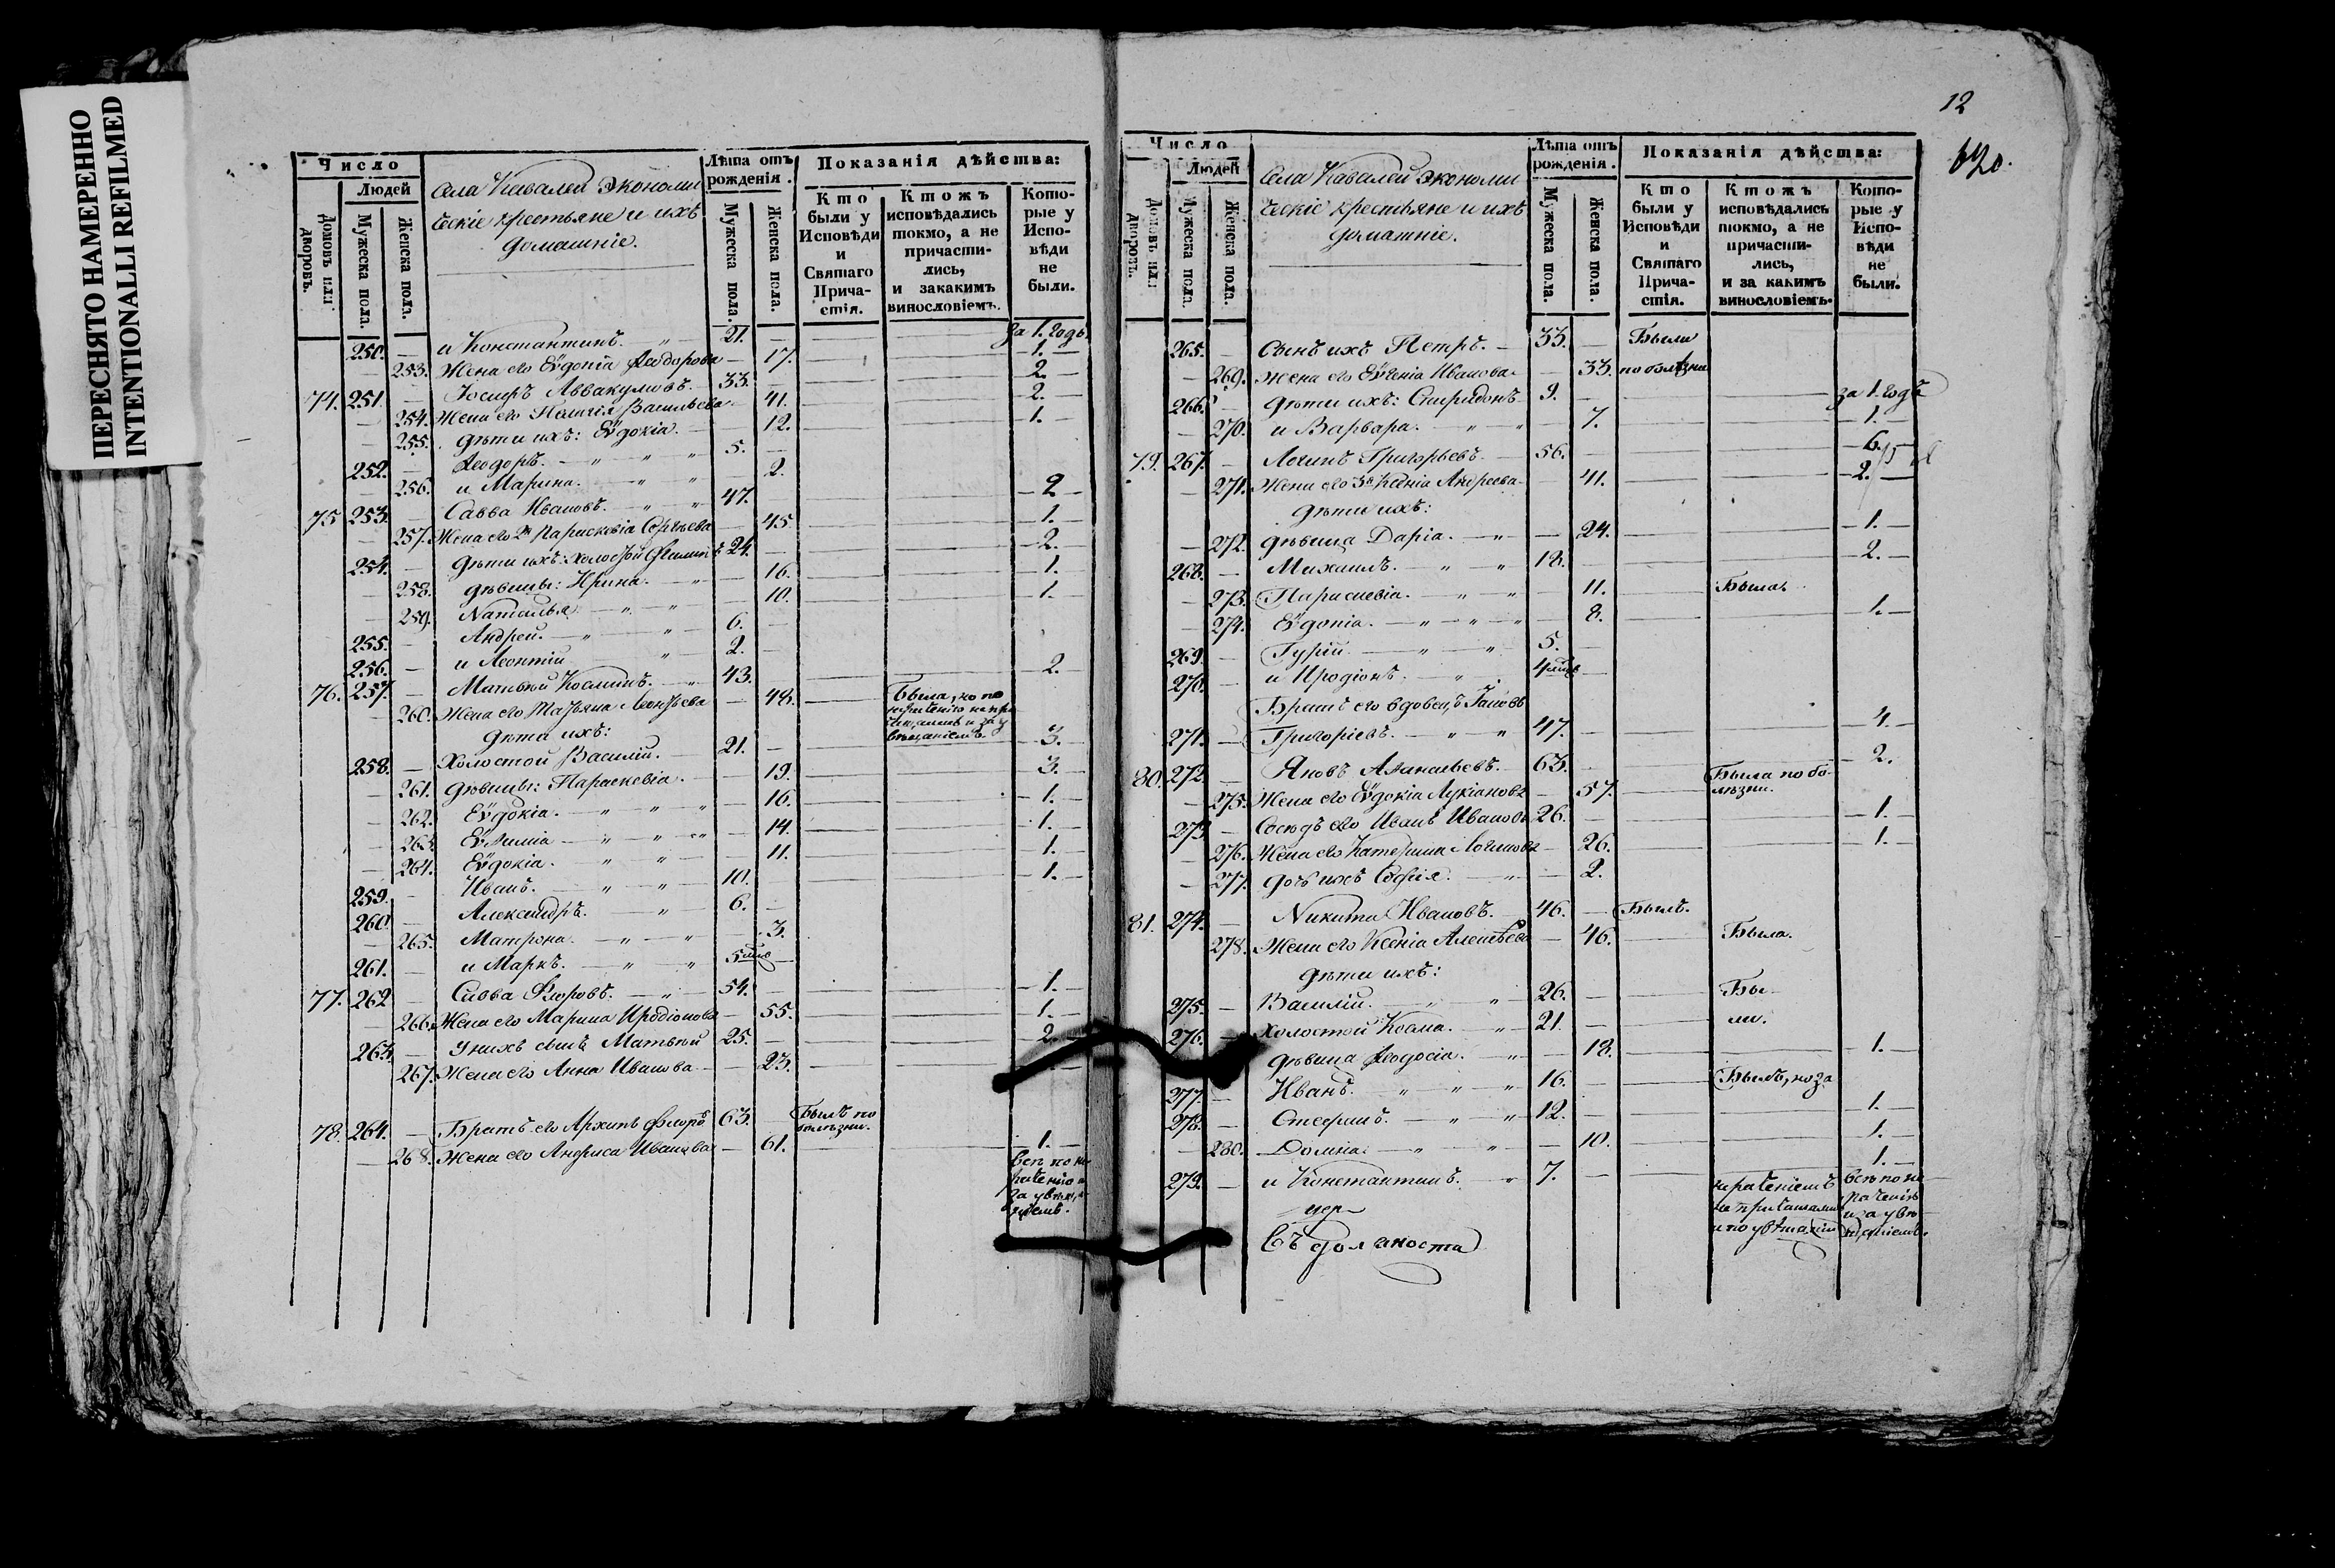 ПЕРЕСНЯТО НАМЕРЕННО
INTENTIONALLI REFILMED
Число
Людей
Домовъ или дворовъ.
Мужеска пола.
Женска пола.
Села Кавалей Экономи
ческіе крестьяне и ихъ
домашніе.
Лѣта отъ рожденія.
Мужеска пола.
Женска пола.
Показанія дѣйства:
Кто были у Исповѣди и Святаго Прича-стія.
Ктожъ исповѣдались токмо, а не причасти-лись, и закакимъ винословіемъ.
Кото-рые у Испо-вѣди не были.
250. — и Константинъ. 21. — за 1. годъ
— 253. Жена его Еѵдокія Ѳеодорова — 17. 1.
74. 251. — Іосифъ Аввакумовъ. 33. — 2.
— 254. Жена его Васильева — 41. 2.
— 255. дѣти ихъ: Еѵдокія. — 12. 1.
252. — Ѳеодоръ. 5. —
— 256. и Марина. — 2.
75 253. — Савва Ивановъ. 47. — 2
— 257. Жена его Параскевіа Сергѣева — 45. 1.
254. — дѣти ихъ: холостой Филипъ 24. — 2.
— 258. дѣвицы: Ирина. — 16. 1.
— 259. Наталья — 10. 1.
255. — Андрей. 6. —
256. — и Леонтій 2. —
76. 257. — Матвѣй Косминъ. 43. — 2.
— 260. Жена его Марьяна Леонтьева — 48. Была, но по
дѣти ихъ:
258. — Холостой Василій. 21. — 3.
— 261. дѣвицы: Параскевіа. — 19. 3.
— 262. Еѵдокіа. — 16. 1.
— 263. Еѵѳиміа — 14. 1.
— 264. Еѵдокіа. — 11. 1.
259. — Иванъ. 10. — 1.
260. — Александръ. 6. —
— 265. Матрона. — 3.
261. — и Маркъ. 5 —
77. 262 — Савва Флоровъ. 54. — 1.
— 266. Жена его Марина Иродіонова — 55. 1.
263. — У нихъ сынъ Матвѣй 25. — 2.
— 267. Жена его Анна Иванова — 23.
78 264. — Братъ его Архипъ Флоровъ 63. Былъ по
болѣзни.
— 268. Жена его Анфиса Иванова — 61. 1.
12
Число
Людей
Домовъ или дворовъ.
Мужеска пола.
Женска пола.
Села Кавалей Экономи
ческіе крестьяне и ихъ
домашніе.
Лѣта отъ рожденія.
Мужеска пола.
Женска пола.
Показанія дѣйства:
Кто были у Исповѣди и Святаго Прича-стія.
Ктожъ исповѣдались токмо, а не причасти-лись, и за какимъ винословіемъ.
Кото-рые у Испо-вѣди не были.
265. — Сынъ ихъ Петръ. 33. — Были
— 269. Жена его Еѵгенія Иванова. — 33. по болѣзни
266. — дѣти ихъ: Спиридонъ 9. — за 1. годъ
— 270. и Варвара. — 7. 1.
79. 267. — Логинъ Григорьевъ. 56. — 6.
— 271. Жена его Андреева — 41. 2.
дѣти ихъ:
— 272. дѣвица Даріа. — 24. 1.
268. — Михаилъ. 18. — 2.
— 273. Параскевіа. — 11. Была.
— 274. Еѵдокіа. — 8. 1.
269. — Гурій 5. —
270. — и Иродіонъ. 4 —
Братъ его вдовецъ Іаковъ
271. — Григоріевъ. 47. — 4.
80. 272. — Яковъ Аѳанасьевъ. 63. — 2.
— 275. Жена его Еѵдокіа Лукіанова — 57. Была по бо-
лѣзни.
273 — Сосѣдъ его Иванъ Ивановъ 26. — 1.
— 276. Жена его Катерина Логинова — 26. 1.
— 277. дочь ихъ Софія. — 2.
81. 274. — Никита Ивановъ. 46. — Былъ.
— 278. Жена его Ксенія Алексѣева — 46. Была.
дѣти ихъ:
275. — Василій. 26. — Бы-
276. — холостой Косма. 21. — ли.
дѣвица Ѳеодосіа. — 18. 1.
277. — Иванъ. 16. — Былъ, но за
278. — Стефанъ. 12. — 1.
— 280. Домна. — 10. 1.
279. — и Константинъ. 7. — 1.